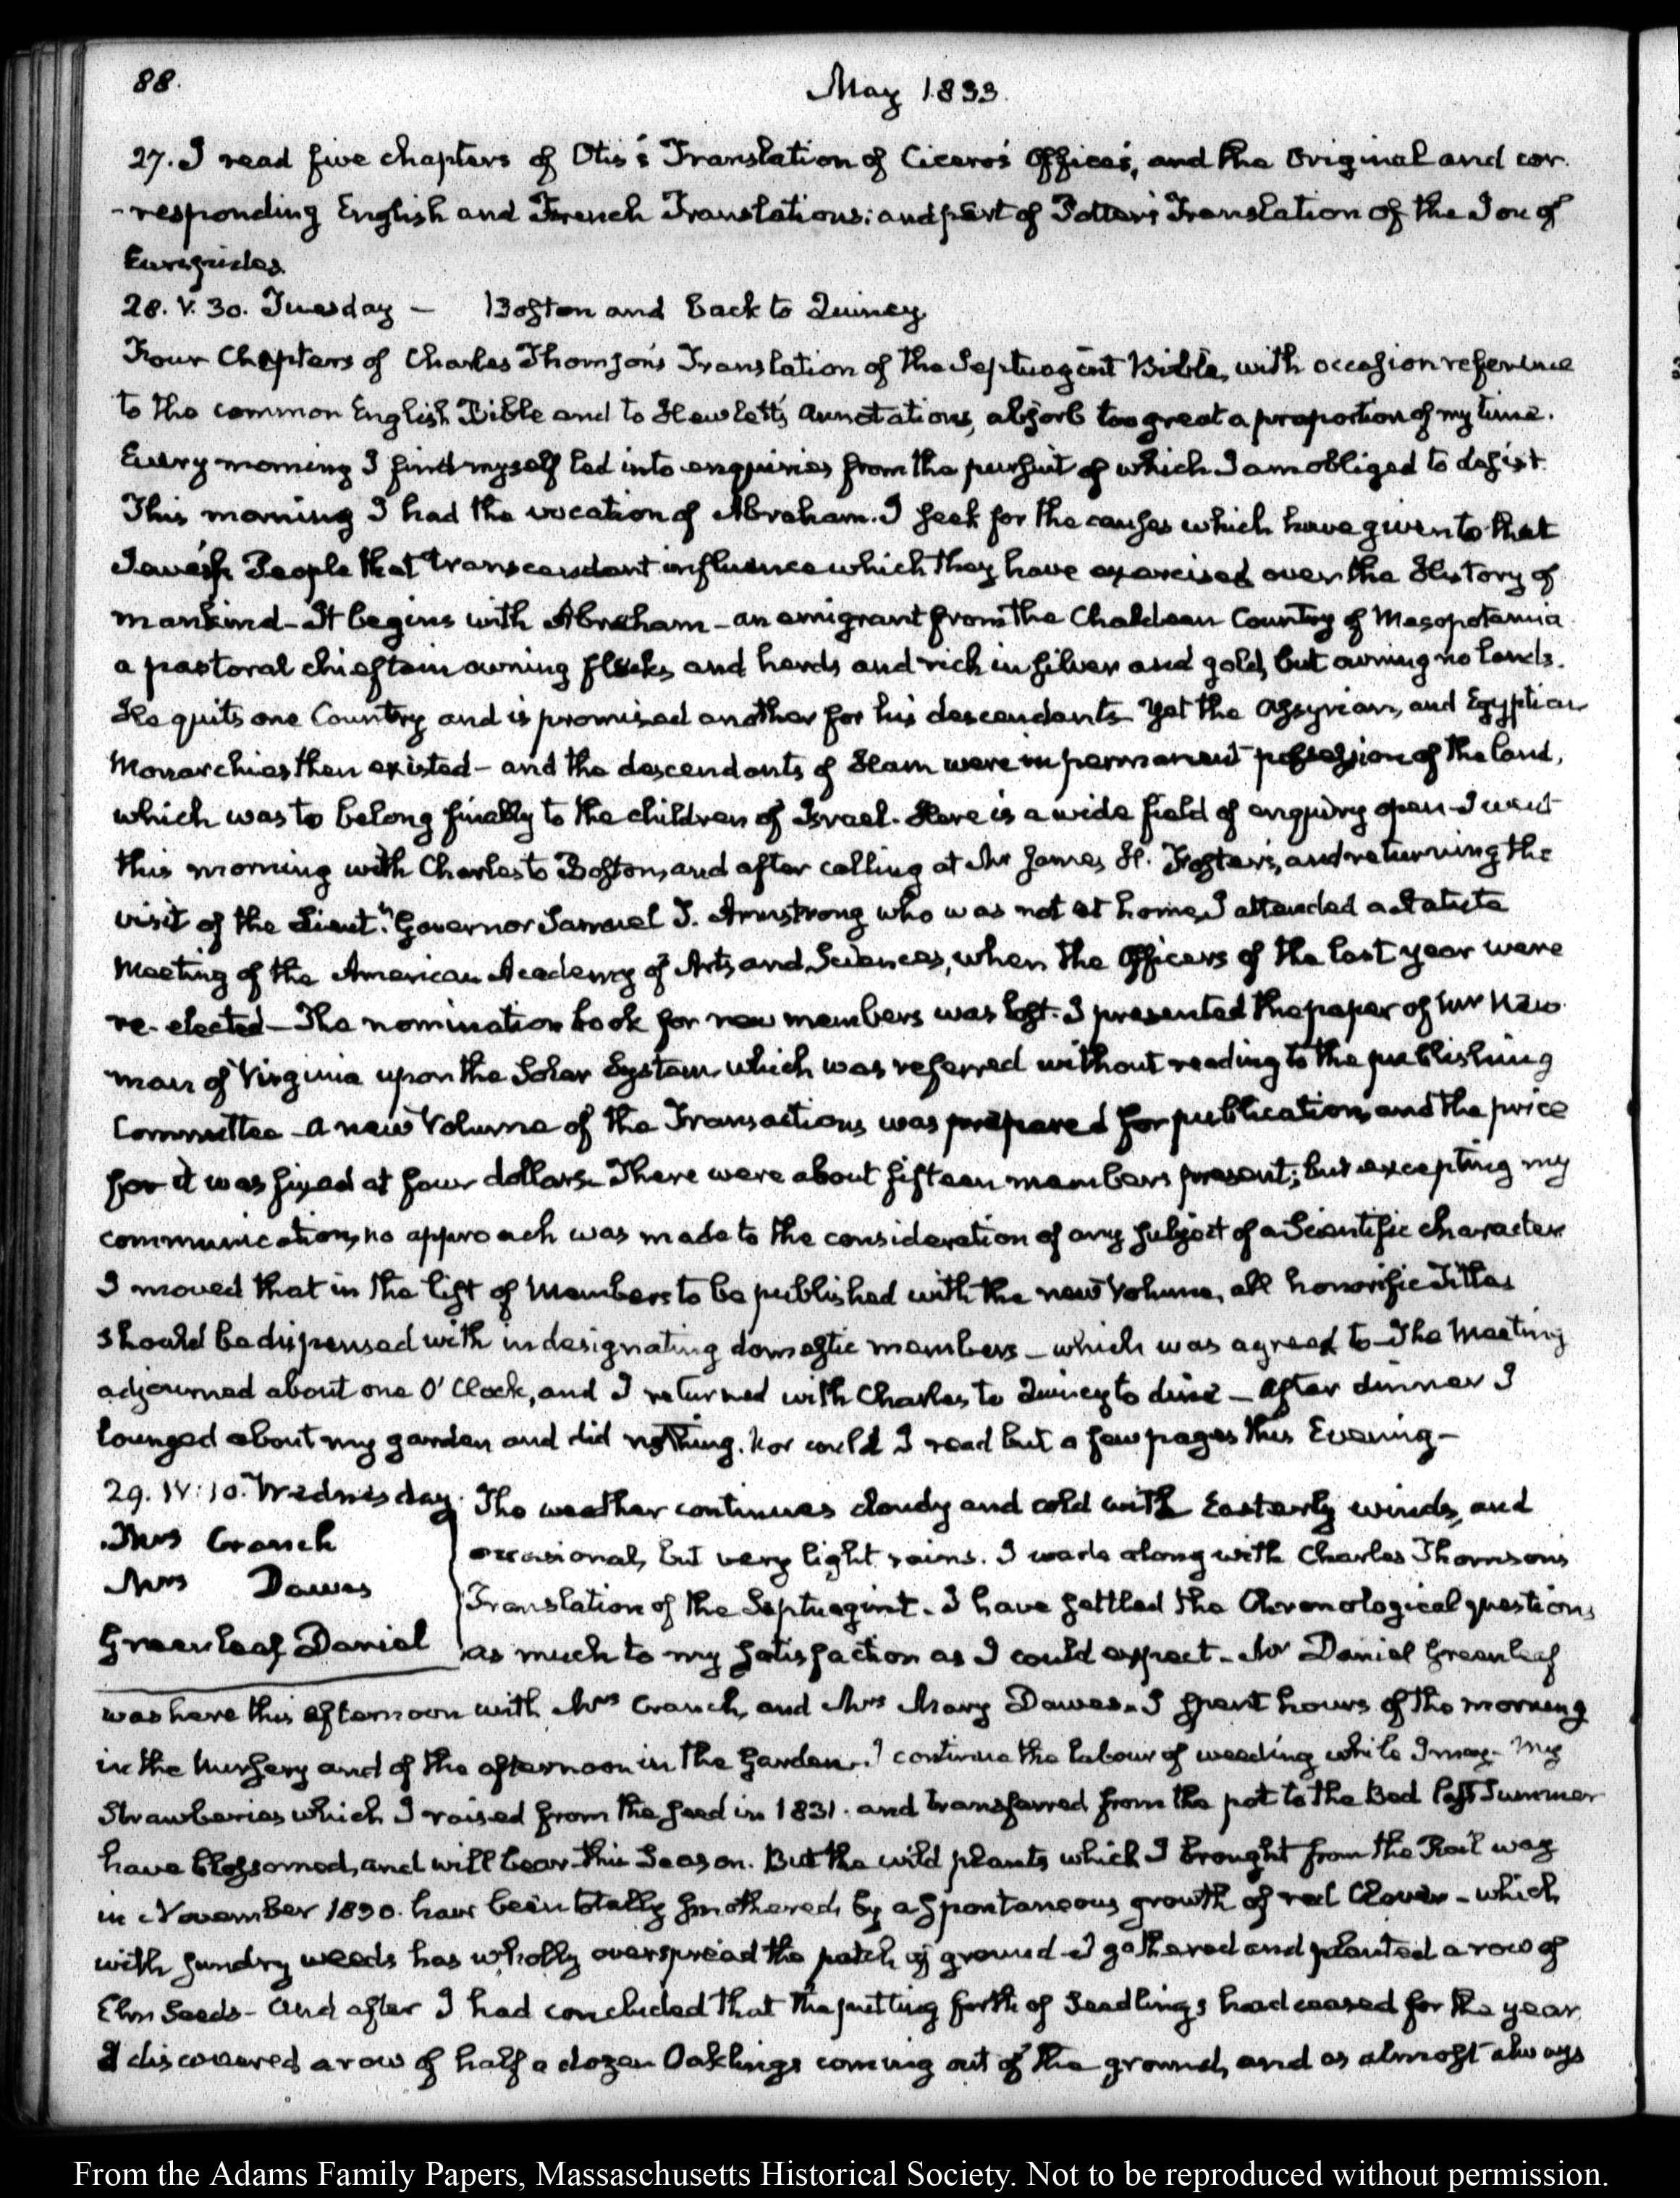 88.
May 1833.
27. I read five chapters of Otis's Translation of Cicero's Offices, and the Original and cor-
-responding English and French Translations: and part of Potter's Translation of the Ion of
Euripides.
28. V. 30. Tuesday — Boston and back to Quincy.
Four Chapters of Charles Thomson's Translation of the Septuagint Bible, with occasion reference
to the common English Bible and to Hewlett's Annotations, absorb too great a proportion of my time.
Every morning I find myself led into enquiries from the pursuit of which I am obliged to desist.
This morning I had the vocation of Abraham. I seek for the causes which have given to that
Jewish People that transcendant influence which they have exercised over the History of
mankind - It begins with Abraham - an emigrant from the Chaldean Country of Mesopotamia
a pastoral chieftain owning flocks and herds and rich in silver and gold, but owning no lands.
He quits one Country and is promised another for his descendants. Yet the Assyrian, and Egyptian
Monarchies then existed - and the descendants of Ham were in permanent possession of the land,
which was to belong finally to the children of Israel. Here is a wide field of enquiry open - I went
this morning with Charles to Boston, and after calling at Mr James H. Foster's, and returning the
visit of the Lieut.t Governor Samuel T. Armstrong who was not at home, I attended a Statute
Meeting of the American Academy of Arts and Sciences, when the Officers of the last year were
re-elected - The nomination book for new members was lost. I presented the paper of Mr New-
man of Virginia upon the Solar System which was referred without reading to the publishing
Committee - A new Volume of the Transactions was prepared for publication, and the price
for it was fixed at four dollars. There were about fifteen members present; but excepting my
communication, no approach was made to the consideration of any subject of a Scientific character
I moved that in the list of Members to be published with the new Volume, all honorific Titles
should be dispensed with in designating domestic members - which was agreed to - The Meeting
adjourned about one O'Clock, and I returned with Charles to Quincy to dine - After dinner I
lounged about my garden and did nothing. Nor could I read but a few pages this Evening -
29. IV: 10. Wednesday. The weather continues cloudy and cold with Easterly winds, and
Mrs Cranch occasional, but very light rains. I wade along with Charles Thomson's
Mrs Dawes Translation of the Septuagint. I have settled the Chronological questions
Greenleaf Daniel as much to my satisfaction as I could expect - Mr Daniel Greenleaf
was here this afternoon with Mrs Cranch, and Mrs Mary Dawes. I spent hours of the morning
in the Nursery and of the afternoon in the Garden. I continue the labour of weeding while I may - My
Strawberries which I raised from the seed in 1831. and transferred from the pot to the Bed last Summer
have blossomed, and will bear this Season. But the wild plants which I brought from the Rail way
in November 1830. have been totally smothered, by a spontaneous growth of red Clover - which
with sundry weeds has wholly overspread the patch of ground - I gathered and planted a row of
Elm Seeds - And after I had concluded that the putting forth of Seedlings had ceased for the year
I discovered a row of half a dozen Oaklings coming out of the ground, and as almost always
From the Adams Family Papers, Massaschusetts Historical Society. Not to be reproduced without permission.